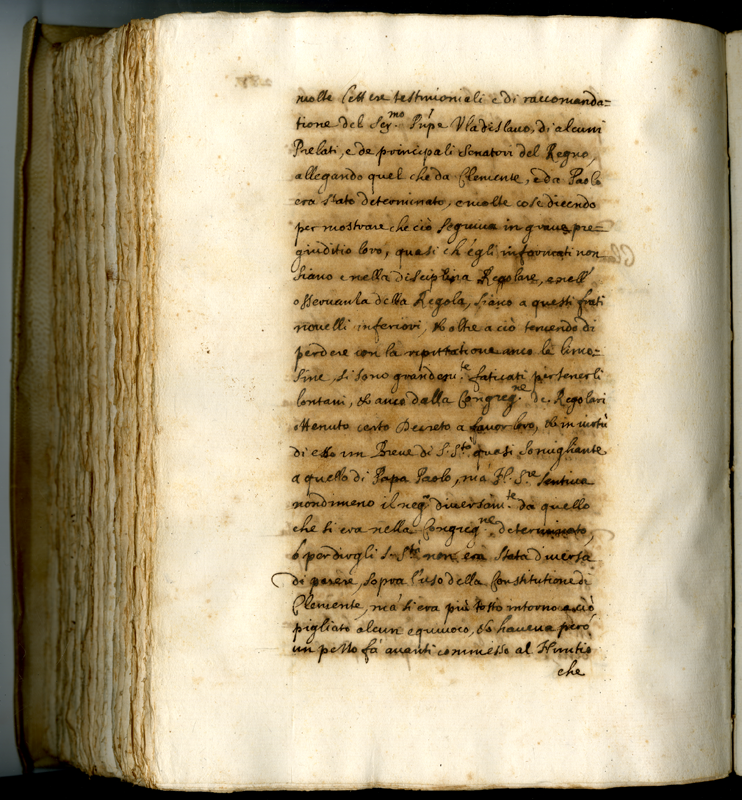 molte lettere testimoniali e di raccomanda=
tione del Ser.mo Pnpe Vladislauo, di alcuni
Prelati, e de principali Senatori del Regno,
allegando quel che da Clemente, e da Paolo
era stato determinato, e molte cose dicendo
per mostrare che ciò seguiua in graue pre=
giuditio loro, quasi ch'egli informati non
siano e nella disciplina Regolare, e nell'
osseruanza della Regola, siano a questi frati
nouelli inferiori, & oltre a ciò temendo di
perdere con la riputtatione anco le limo=
sine, si sono grandem.te faticati per tenerli
lontani, & anco dalla Congreg.ne de Regolari
ottenuto certo Decreto a fauor loro, & in uirtù
di esso un Breue di S. S.tà quasi somigliante
a quello di Papa Paolo, mà N. S.re sentiua
nondimeno il neg.o diuersam.te da quello
che si era nella Congreg.ne determinato,
ò per dirgli S. S.tà non era stata diuersa
di parere, sopra l'uso della Constitutione di
Clemente, mà si era più tosto intorno a ciò
pigliato alcun equiuoco, & haueua però
un pezzo fà auanti commesso al Nuntio
che